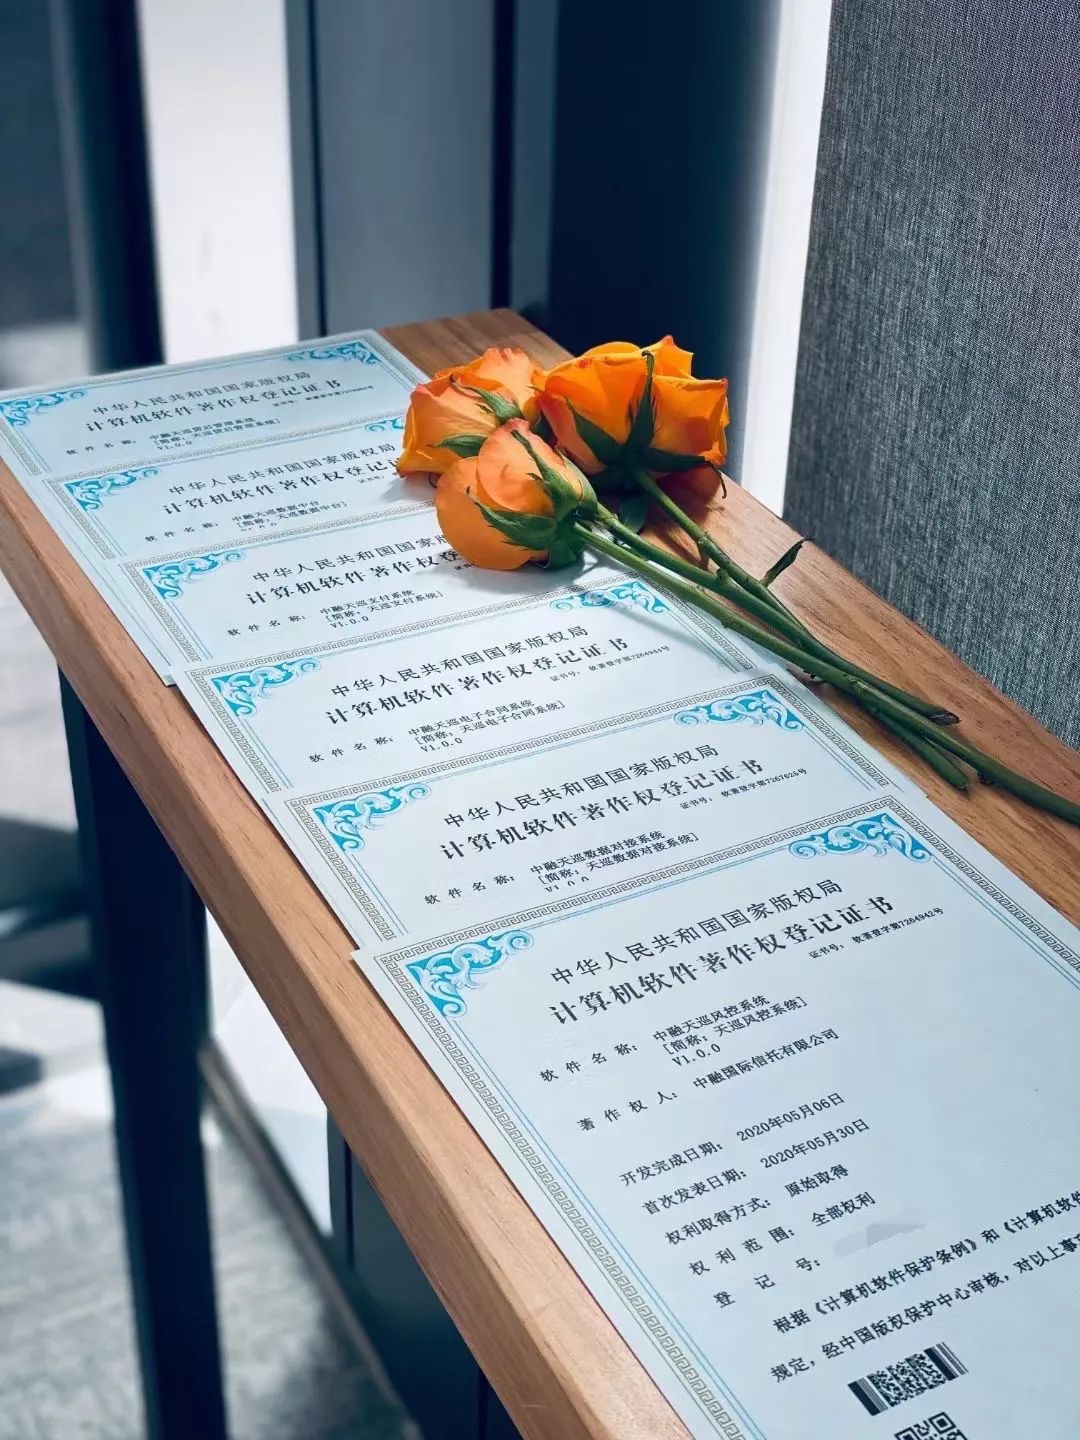 中华人民共和国国家版权局
计算机软件著作权登记证书
软件名称：
中融天巡贷后管理系统
[简称：天巡贷后管理系统]
V1.0.0
中华人民共和国国家版权局
计算机软件著作权登记
软件名称：
中融天巡数据中台
[简称：天巡数据中台]
中华人民共和国国家版
计算机软件著作权
软件名称：
中融天巡支付系统
[简称：天巡支付系统]
V1.0.0
中华人民共和国国家版权局
计算机软件著作权登记证书
证书号：软著登字第7264944号
软件名称：
中融天巡电子合同系统
[简称：天巡电子合同系统]
V1.0.0
中华人民共和国国家版权局
计算机软件著作权登记证书
证书号：软著登字第7267625号
软件名称：
中融天巡数据对接系统
[简称：天巡数据对接系统]
V1.0.0
中华人民共和国国家版权局
计算机软件著作权登记证书
证书号：软著登字第7264942号
软件名称：
中融天巡风控系统
[简称：天巡风控系统]
V1.0.0
著作权人：中融国际信托有限公司
开发完成日期：2020年05月06日
首次发表日期：2020年05月30日
权利取得方式：原始取得
权利范围：全部权利
登记号：
根据《计算机软件保护条例》和《计算机软件
规定，经中国版权保护中心审核，对以上事